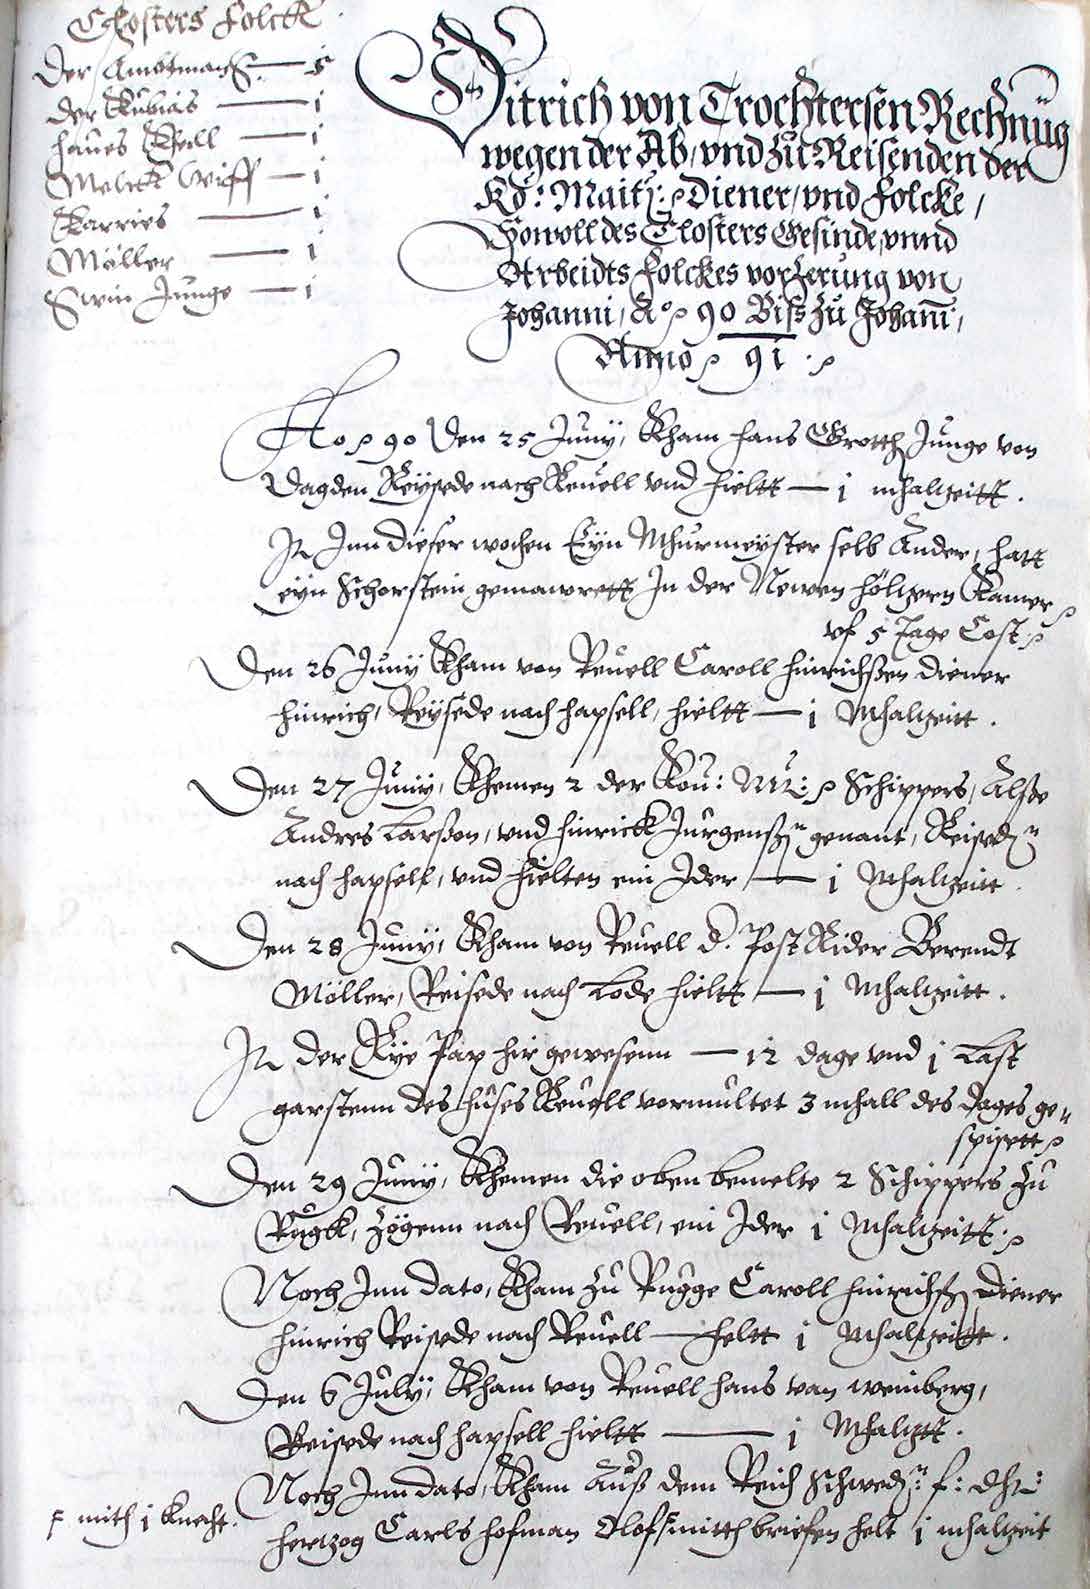 Closters Folck
Der Ambtman — 5
der Kubias — 1
Hanes Kholl — 1
Melck Wiff — 1
Karries — 1
Möller — 1
Swin Junge — 1
Ditrich von Trochtersen Rechnüg
wegen der Ab, vnd Zu Reisenden der
Kö: Maitt: Diener, vnd Folcke,
Sowoll des Closters Gesinde, vnnd
Arbeidts Folckes vorZerung von
Johanni, Ao 90 Biss Zu Johanni,
Anno 91
Ao 90 Den 25 Juny, Kham Hans Grotth Junge von
Dagden Reysede nach Reuell vnd hieltt — 1 mhaltzeitt.
It Inn dieser wochen Eyn Mhurmeyster selb Ander, hatt
eyn Schorstein gemawrett In der Newen höltzern Kamer
vf 5 Tage Cost
Den 26 Juny Kham von Reuell Caroll Hinrichßen diener
Hinrich, Reysede nach Hapsell, hieltt — 1 Mhaltzeitt.
Den 27 Juny, Khemen 2 der Kon: Mtt: Schippers, Alße
Andres Larßon, vnd Hinrick Jurgenß genant, Reiseden
nach Hapsell, vnd hielten ein Jder — 1 Mhaltzeitt.
Den 28 Juny, Kham von Reuell d. Post Rider Berendt
Möller, Reisede nach Lode hieltt — 1 Mhaltzeitt.
It der Rye Pap hir gewesenn — 12 dage vnd 1 Last
garstenn des Huses Reuell vormultet 3 mhall des dages ge-
spisett
Den 29 Juny, Khemen die oben bemelte 2 Schippers Zu
Rugk, Zögenn nach Reuell, ein Jder 1 Mhaltzeitt.
Noch Inn dato, Kham Zu Rugge Caroll Hinrichß Diener
Hinrich Reisede nach Reuell — heltt 1 Mhaltzeitt.
Den 6 July, Kham von Reuell Hans van Weinberg,
Reisede nach Hapsell hieltt — 1 Mhaltztt.
Noch Inn dato, Kham Auß dem Reich Schweden f: dht:
Hertzog Carls Hofman Olof mitth briefen helt 1 mhaltzeit
mith 1 Knecht.